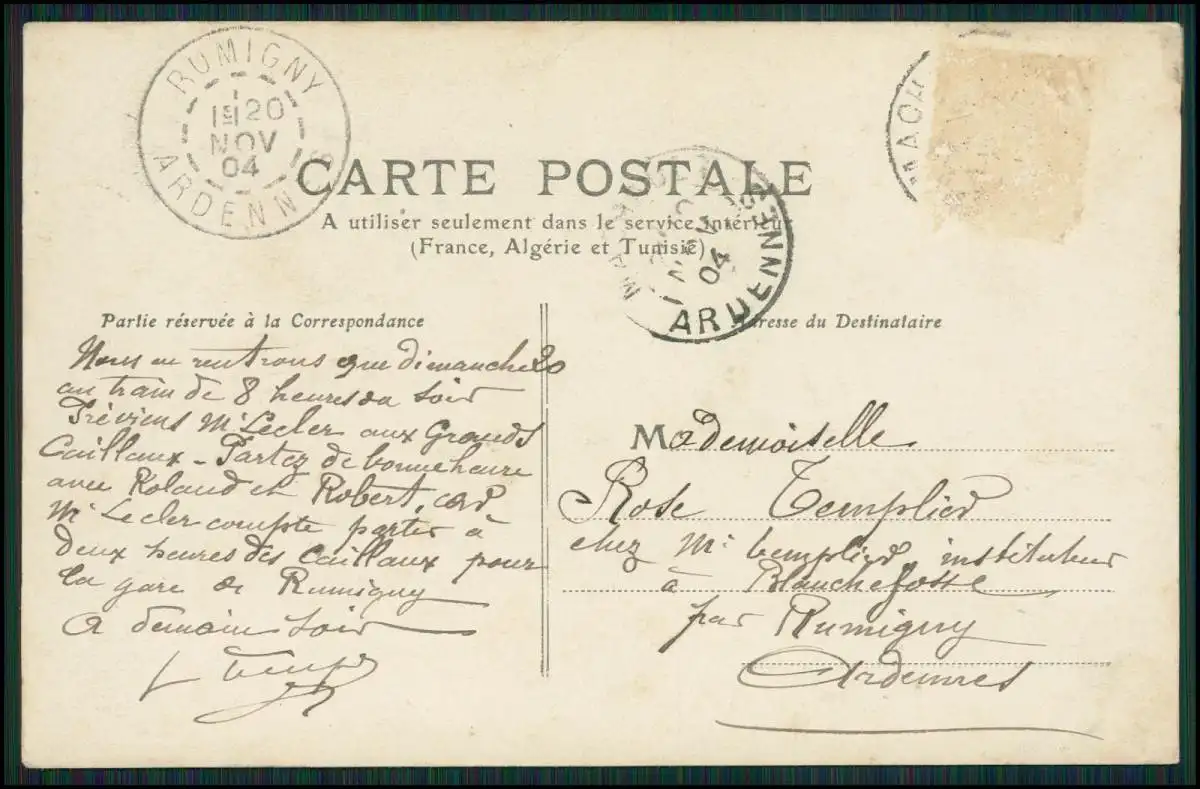 RUMIGNY
1E 20
NOV
04
ARDENNES
CARTE POSTALE
A utiliser seulement dans le service intérieur
(France, Algérie et Tunisie)
NOV
04
ARDENNES
Partie réservée à la Correspondance
Nous ne rentrons que dimanche 20
au train de 8 heures du soir
Préviens Mr Lecler aux Grands
Caillaux - Partez de bonne heure
avec Roland et Robert, car
Mr Lecler compte partir à
deux heures des Caillaux pour
la gare de Rumigny
A demain soir
Adresse du Destinataire
Mademoiselle
Rose Templier
chez Mr Templier instituteur
à Blanchefosse
par Rumigny
Ardennes